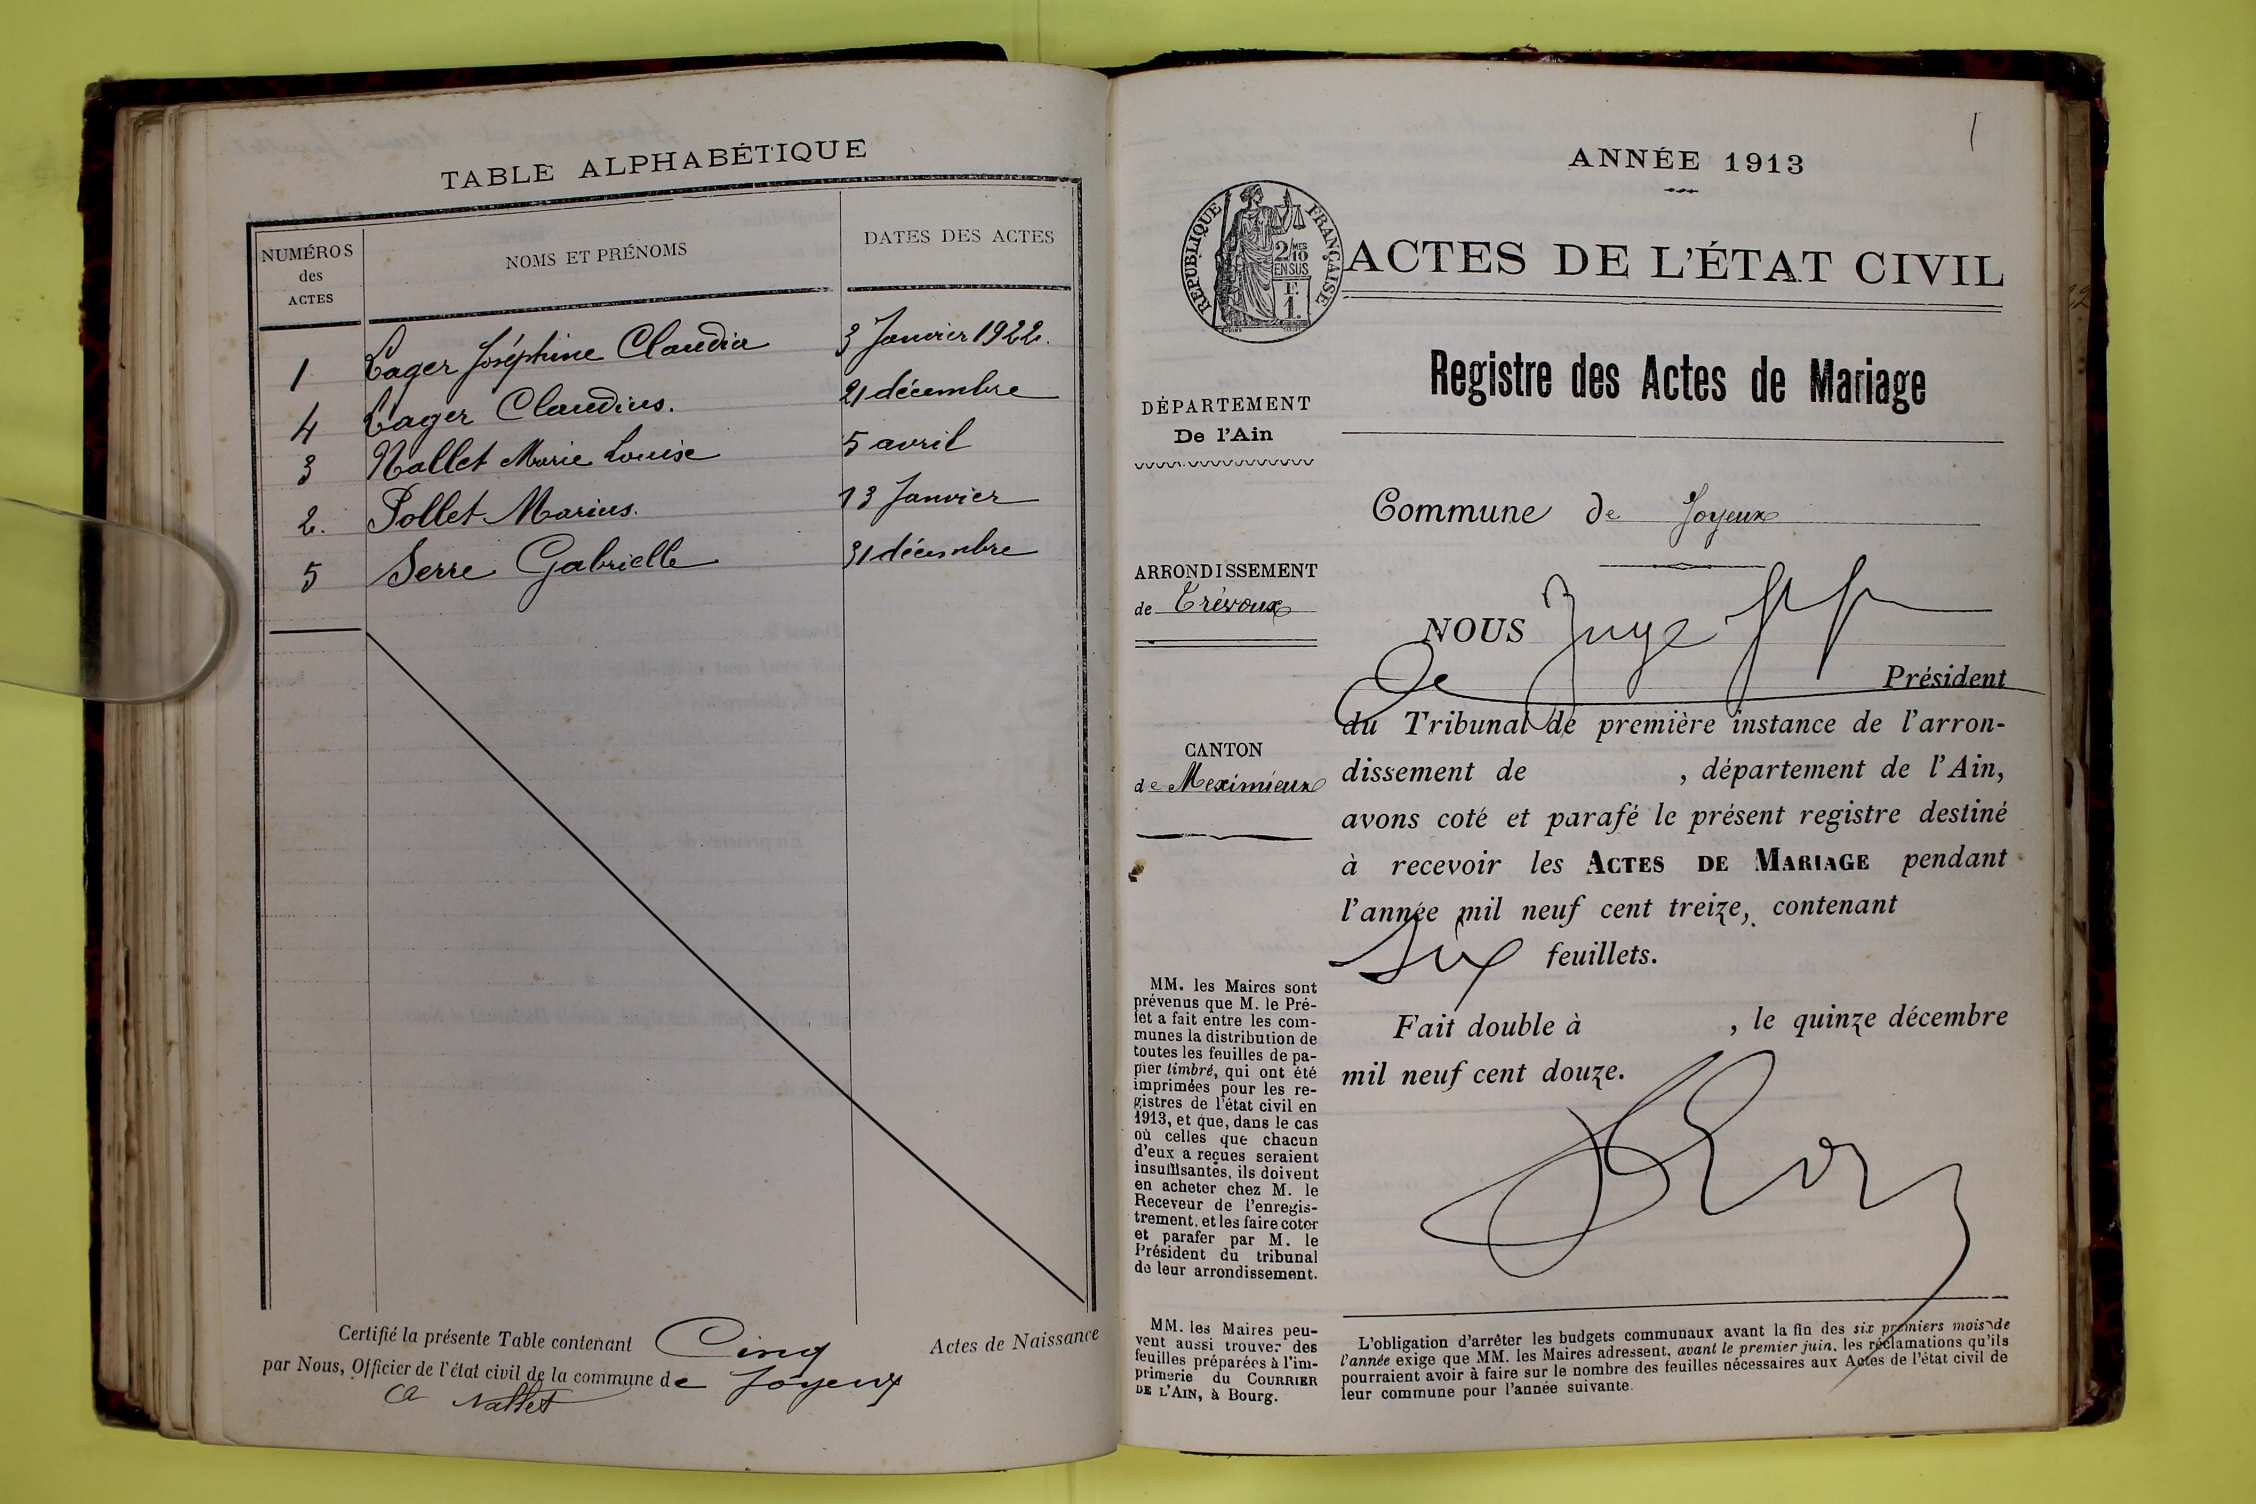 TABLE ALPHABÉTIQUE
NUMÉROS
des
ACTES
NOMS ET PRÉNOMS
DATES DES ACTES
1 Lager Joséphine Claudia 3 Janvier 1922.
4 Lager Claudius. 21 décembre
3 Nallet Marie Louise 5 avril
2. Pollet Marius. 13 Janvier
5 Serre Gabrielle 31 décembre
Certifié la présente Table contenant Cinq Actes de Naissance
par Nous, Officier de l'état civil de la commune de Joyeux
Nallet
1
ANNÉE 1913
RÉPUBLIQUE FRANÇAISE
2/10 MES
EN SUS
F.
1.
ACTES DE L'ÉTAT CIVIL
Registre des Actes de Mariage
DÉPARTEMENT
De l'Ain
ARRONDISSEMENT
de Trévoux
CANTON
de Meximieux
MM. les Maires sont
prévenus que M. le Pré-
fet a fait entre les com-
munes la distribution de
toutes les feuilles de pa-
pier timbré, qui ont été
imprimées pour les re-
gistres de l'état civil en
1913, et que, dans le cas
où celles que chacun
d'eux a reçues seraient
insuffisantes, ils doivent
en acheter chez M. le
Receveur de l'enregis-
trement, et les faire coter
et parafer par M. le
Président du tribunal
de leur arrondissement.
MM. les Maires peu-
vent aussi trouver des
feuilles préparées à l'im-
primerie du COURRIER
DE L'AIN, à Bourg.
Commune de Joyeux
NOUS Juge
Président
du Tribunal de première instance de l'arron-
dissement de , département de l'Ain,
avons coté et parafé le présent registre destiné
à recevoir les ACTES DE MARIAGE pendant
l'année mil neuf cent treize, contenant
six feuillets.
Fait double à , le quinze décembre
mil neuf cent douze.
L'obligation d'arrêter les budgets communaux avant la fin des six premiers mois de
l'année exige que MM. les Maires adressent, avant le premier juin, les réclamations qu'ils
pourraient avoir à faire sur le nombre des feuilles nécessaires aux Actes de l'état civil de
leur commune pour l'année suivante.